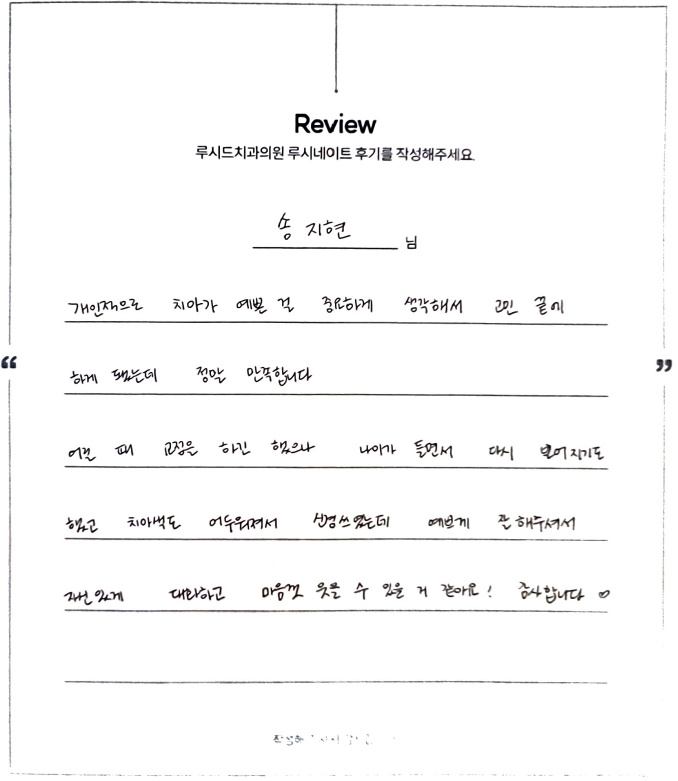 Review
루시드치과의원 루시네이트 후기를 작성해주세요.
송 지현 님
개인적으로 치아가 예쁜 걸 중요하게 생각해서 고민 끝에
“ ”
하게 됐는데 정말 만족합니다
어릴 때 교정을 하긴 했으나 나이가 들면서 다시 벌어지기도
했고 치아색도 어두워져서 신경쓰였는데 예쁘게 잘 해주셔서
자신있게 대화하고 마음껏 웃을 수 있을 거 같아요! 감사합니다 ♡